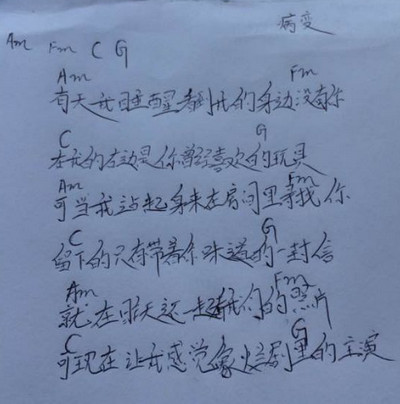 病变
Am Fm C G
Am Fm
有天我睡醒看到我的身边没有你
C G
在我的左边是你曾经喜欢的玩具
Am Fm
可当我站起身来在房间里寻找你
C G
留下的只有带着你味道的一封信
Am Fm
就在昨天还一起我们的照片
C G
可现在让我感觉像烂剧里的主演